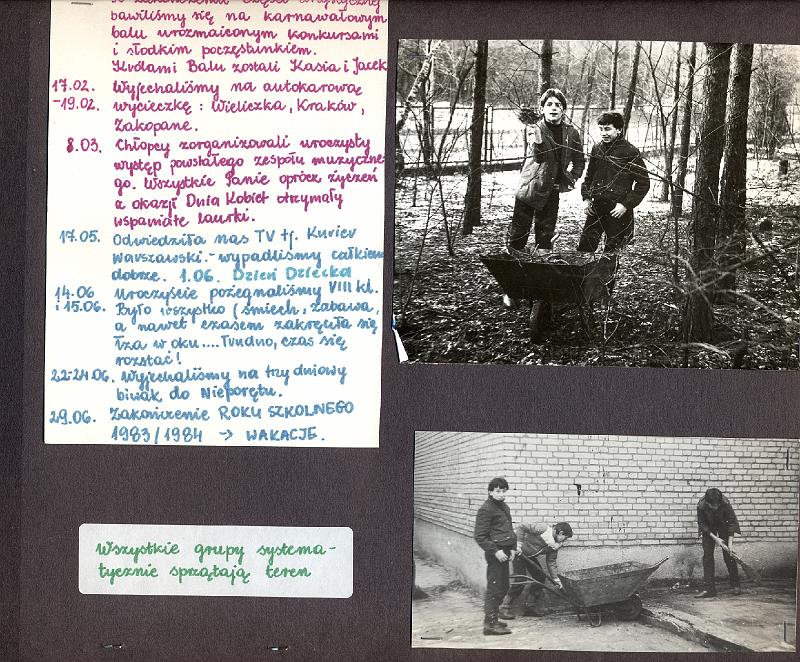 bawiliśmy się na karnawałowym
balu urozmaiconym konkursami
i słodkim poczęstunkiem.
Królami Balu zostali Kasia i Jacek
17.02. Wyjechaliśmy na autokarową
-19.02. wycieczkę : Wieliczka, Kraków,
Zakopane.
8.03. Chłopcy zorganizowali uroczysty
występ powstałego zespołu muzyczne-
go. Wszystkie Panie oprócz życzeń
z okazji Dnia Kobiet otrzymały
wspaniałe laurki.
17.05. Odwiedziła nas TV tj. Kurier
Warszawski.- wypadliśmy całkiem
dobrze. 1.06. Dzień Dziecka
14.06 Uroczyście pożegnaliśmy VIII kl.
i 15.06. Było wszystko (śmiech, zabawa,
a nawet czasem zakręciła się
łza w oku .... Trudno, czas się
rozstać!
22-24.06. Wyjechaliśmy na trzy dniowy
biwak do Nieporętu.
29.06. Zakończenie ROKU SZKOLNEGO
1983/1984 → WAKACJE.
Wszystkie grupy systema-
tycznie sprzątają teren